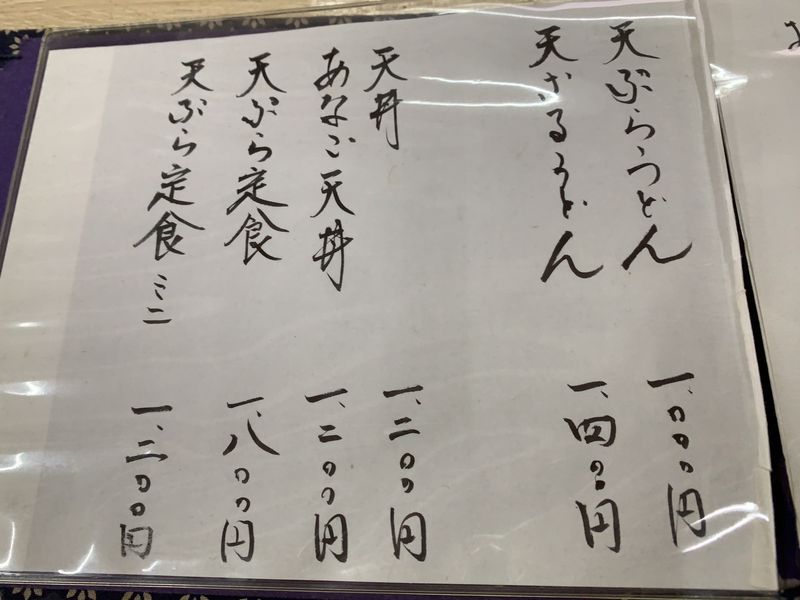 天ぷらうどん 一、〇〇〇円
天ざるうどん 一、四〇〇円
天丼 一、二〇〇円
あなご天丼 一、二〇〇円
天ぷら定食 一、八〇〇円
天ぷら定食 ミニ 一、三〇〇円